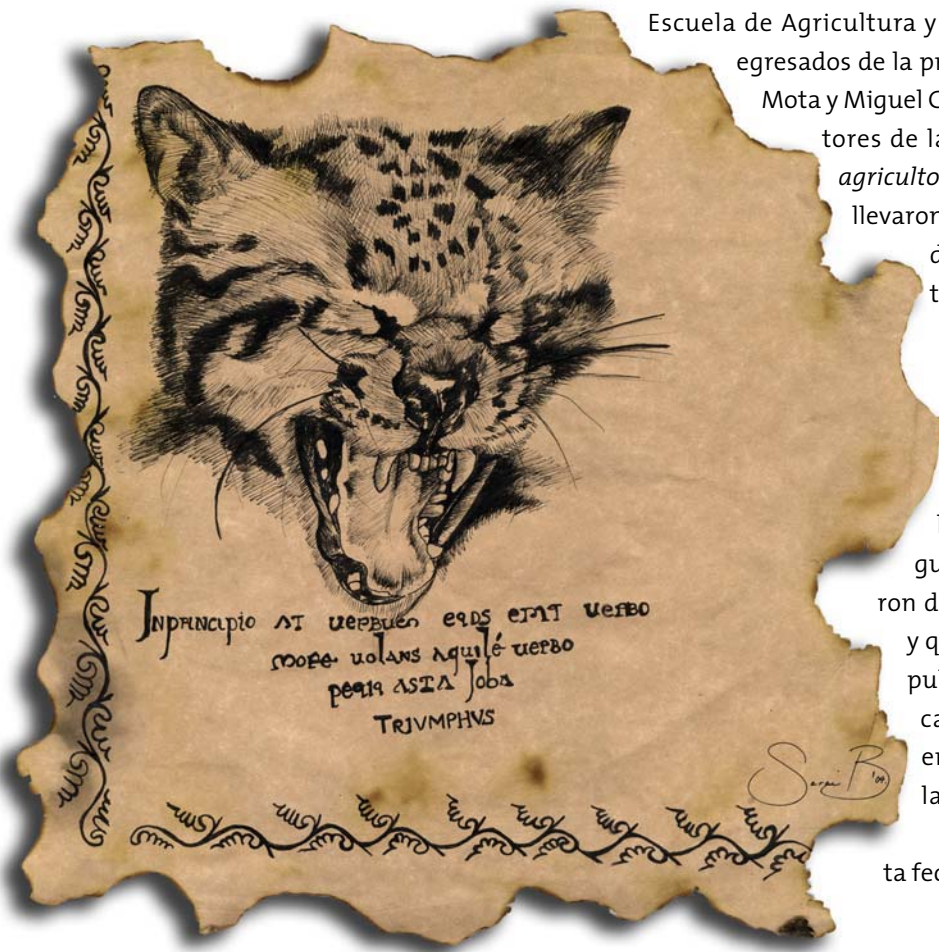 Escuela de Agricultura y
egresados de la pr
Mota y Miguel C
tores de la
agriculto
llevaron
d
t
gu
ron d
y q
pu
ca
er
la
ta fec
INPRINCIPIO AT UERBUEN EQDS ERAT UERBO
MORE UOLANS AQUILÉ UERBO
ASTA JOBA
TRIVMPHVS
Sergi B '04